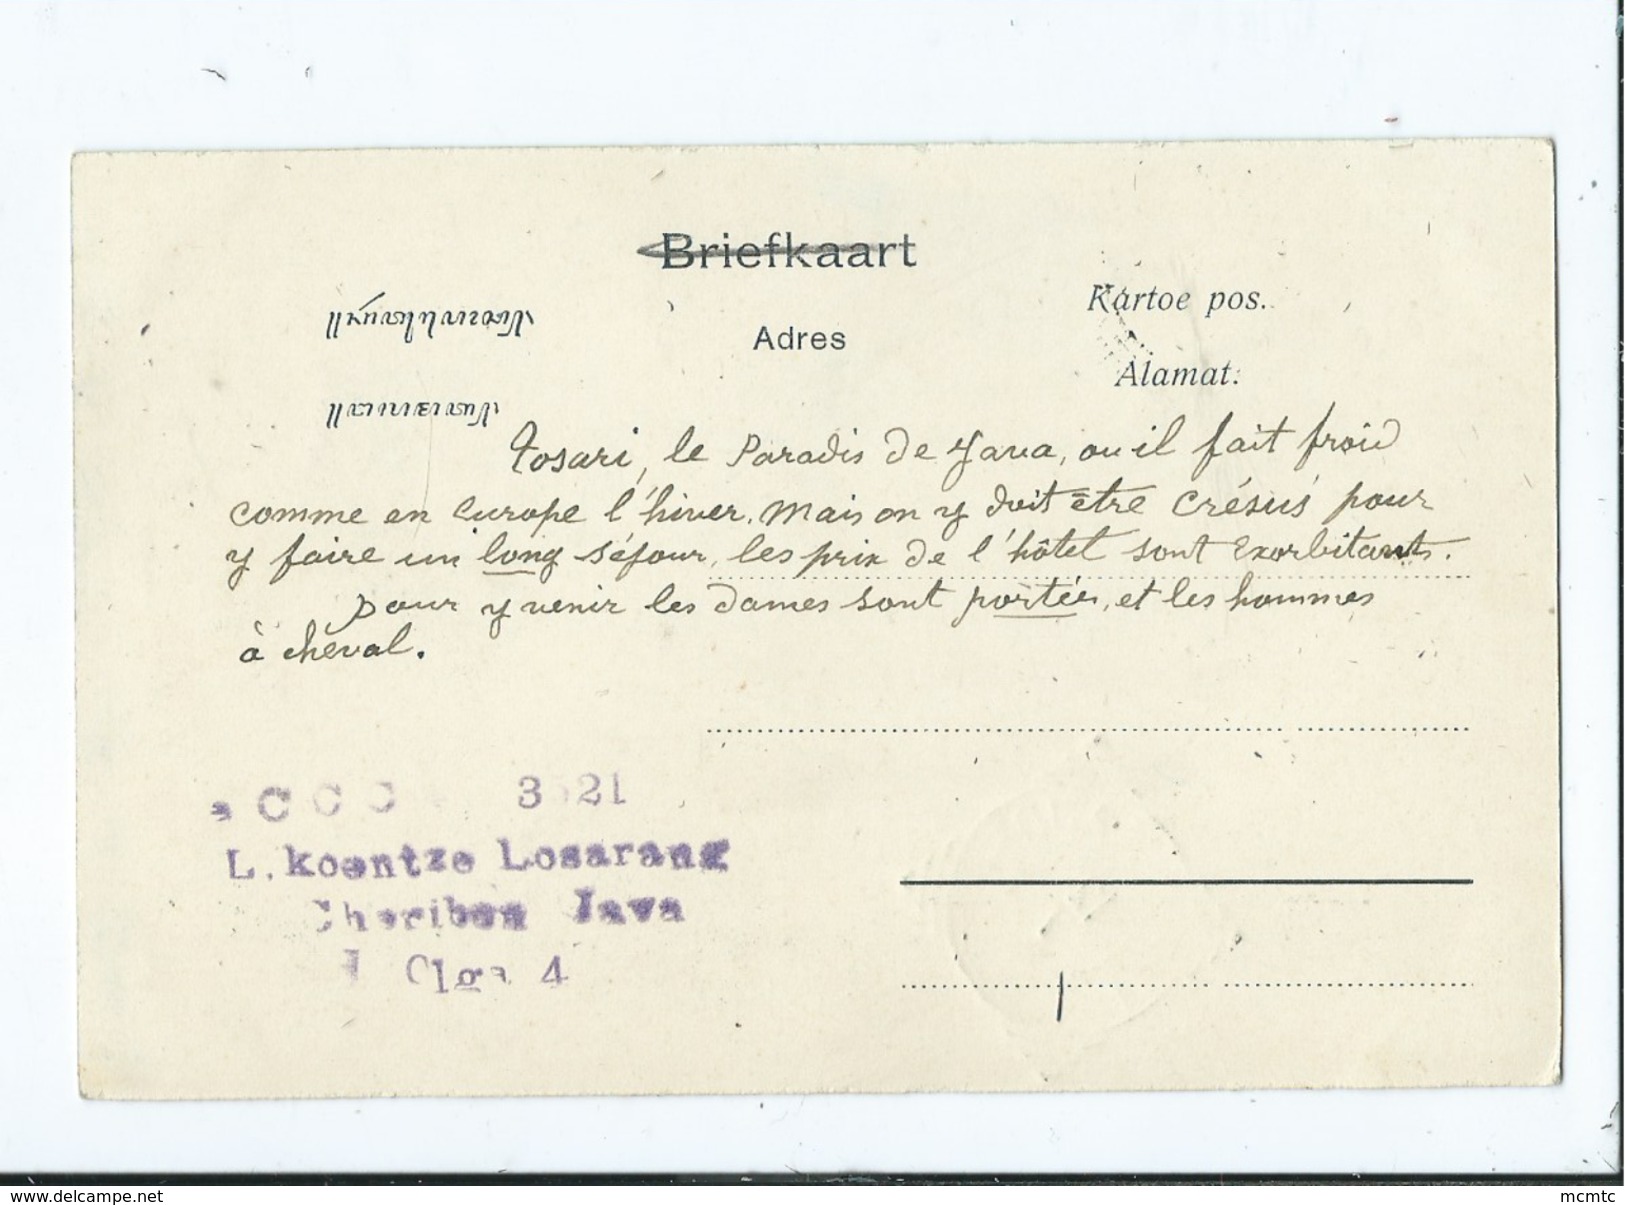 Briefkaart
Kartoe pos.
Adres
Alamat.
Tosari, le Paradis de Java, ou il fait froid
comme en Europe l'hiver. Mais on y doit être Crésus pour
y faire un long séjour, les prix de l'hôtel sont exorbitants.
pour y venir les dames sont portées, et les hommes
à cheval.
CCC 3 21
L. Koentze Losarang
Cheribon Java
Olga 4
www.delcampe.net
mcmtc